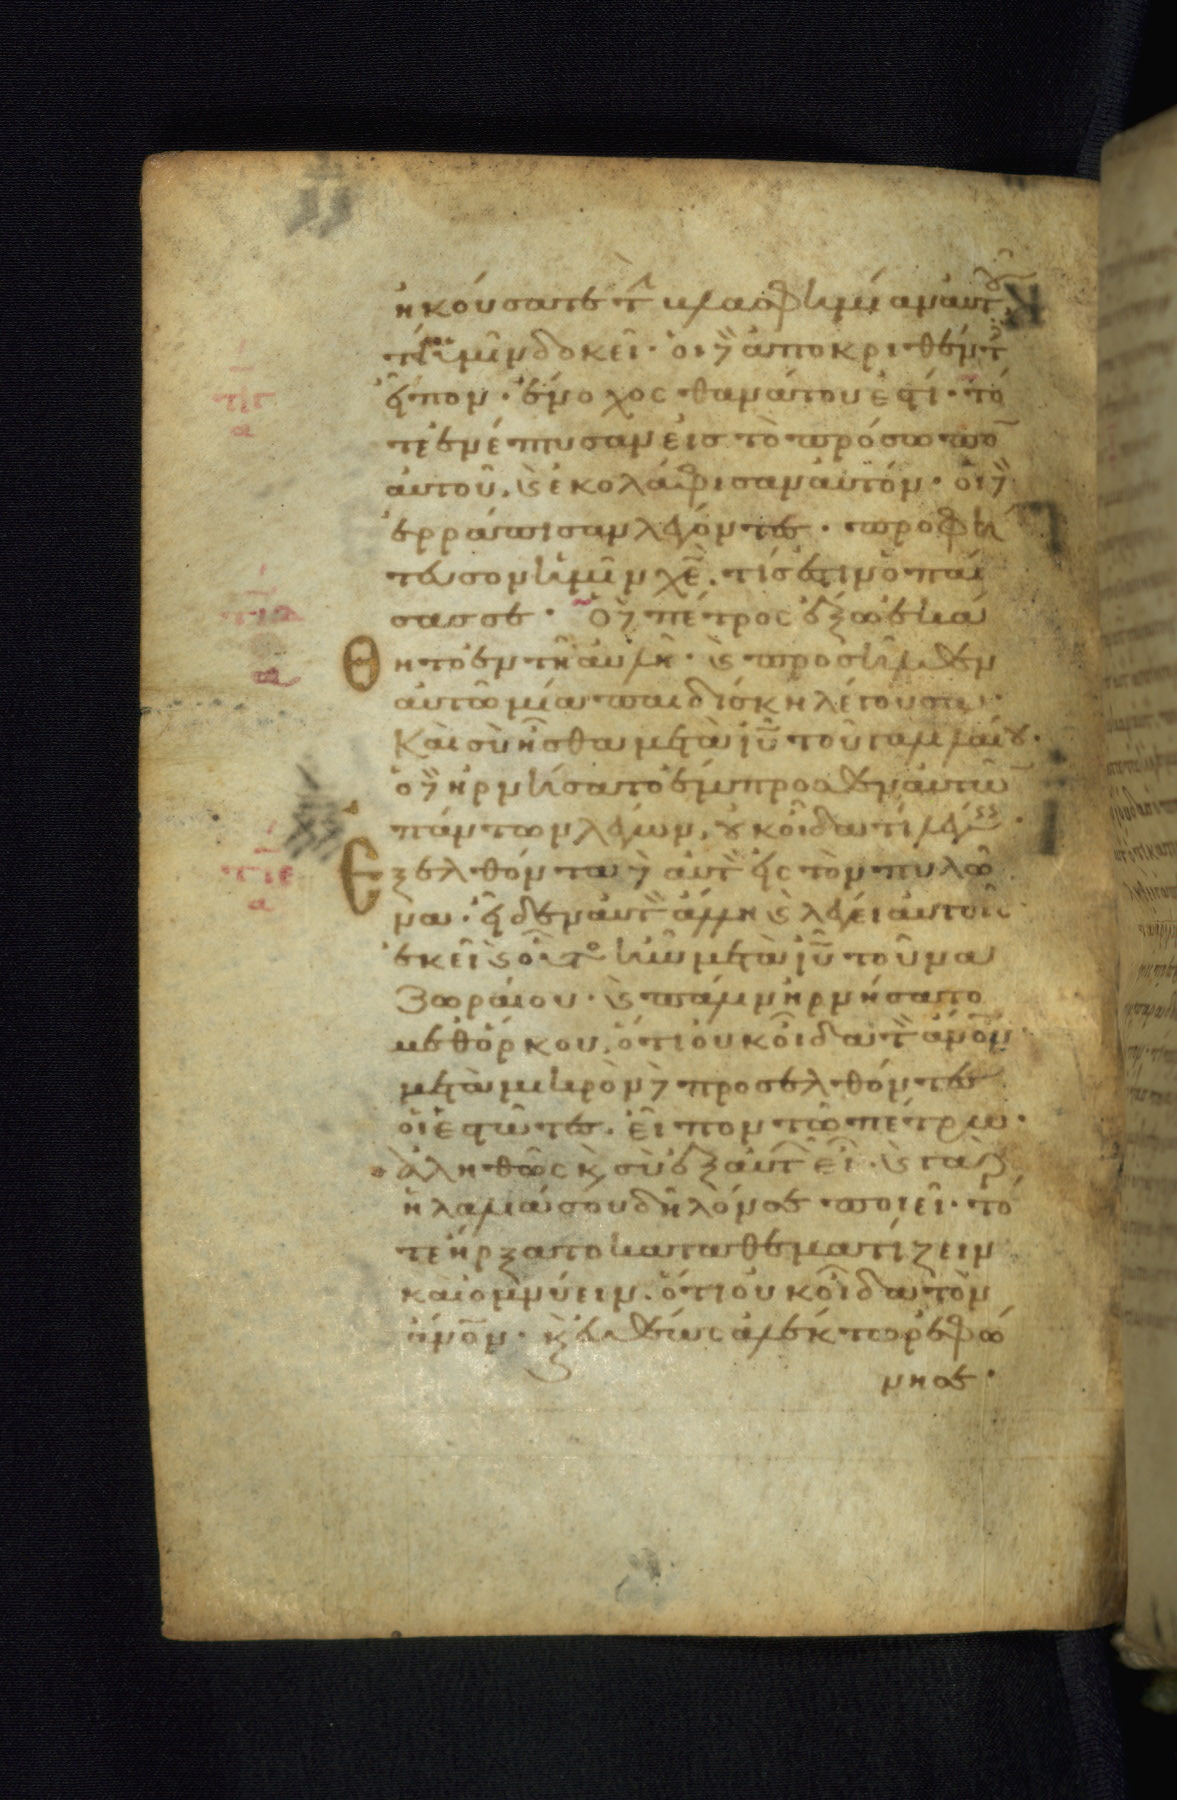 ἠκούσατε τ βλασφημίαν αὐτοῦ
τί ὑμῖν δοκεῖ· οἱ δὲ ἀποκριθέντ
εἶπον· ἔνοχος θανάτου ἐστί· τό
τε ἐνέπτυσαν εἰς τὸ πρόσωπο
αὐτοῦ, κ ἐκολάφισαν αὐτόν· οἱ δὲ
ἐρράπισαν λέγοντες· προφή
τευσον ἡμῖν χε̅, τίς ἐστιν ὁ παί
σας σε· Ὁ δὲ πέτρος ἔξω ἐκά
θητο ἐν τῆ αὐλῆ· κ προσῆλθεν
αὐτῶ μία παιδίσκη λέγουσα·
Καὶ σὺ ἦσθα μετὰ ιυ̅ τοῦ γαλιλαίου·
ὁ δὲ ἠρνήσατο ἔμπροσθεν αὐτῶ
πάντων λέγων, οὐκ οἶδα τί λέγεις·
Ἐξελθόντα δὲ αὐτ εἰς τὸν πυλῶ
να· εἶδεν αὐτ ἄλλη κ λέγει αὐτοῖς
ἐκεῖ κ οὗτο ἦν μετὰ ιυ̅ τοῦ να
ζωραίου· κ πάλιν ἠρνήσατο
μεθ ὅρκου, ὅτι οὐκ οἶδα τ ἄνον̅
μετὰ μικρὸν δὲ προσελθόντες
οἱ ἑστῶτες, εἶπον τῶ πέτρω·
ἀληθῶς κ σὺ ἐξ αὐτ εἶ· κ γὰρ
ἡ λαλιά σου δῆλόν σε ποιεῖ· τό
τε ἤρξατο καταθεματίζειν
καὶ ὀμνύειν, ὅτι οὐκ οἶδα τὸν
ἄνον̅· κ εὐθέως ἀλέκτωρ ἐφώ
νησε·